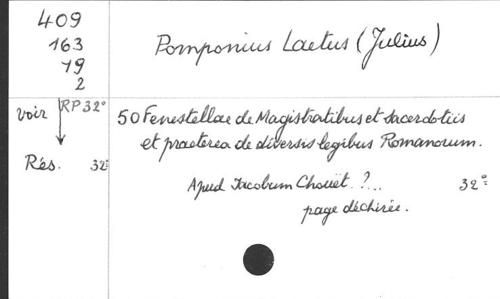 409
163
19
2
Pomponius Laetus (Julius)
voir RP 32°
Rés. 32°
50 Fenestellae de Magistratibus et sacerdotiis
et praeterea de diversis legibus Romanorum.
Apud Jacobum Chouët. ?... 32°
page déchirée.